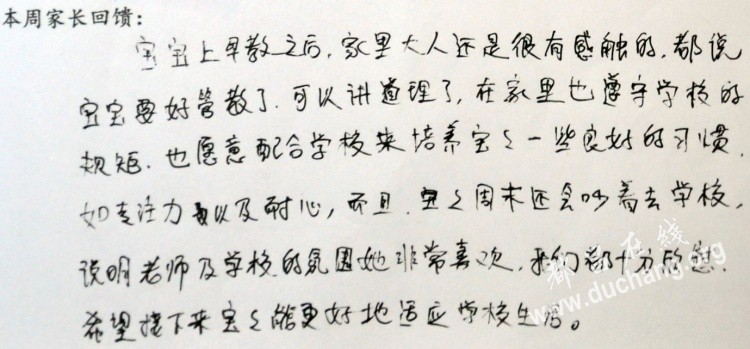 本周家长回馈：
宝宝上早教之后，家里大人还是很有感触的，都说
宝宝要好管教了，可以讲道理了，在家里也遵守学校的
规矩，也愿意配合学校来培养宝々一些良好的习惯，
如专注力以及耐心，而且，宝々周末还会吵着去学校，
说明老师及学校的氛围她非常喜欢，我们都十分欣慰，
希望接下来宝々能更好地适应学校生活。
都昌在线
www.duchang.org